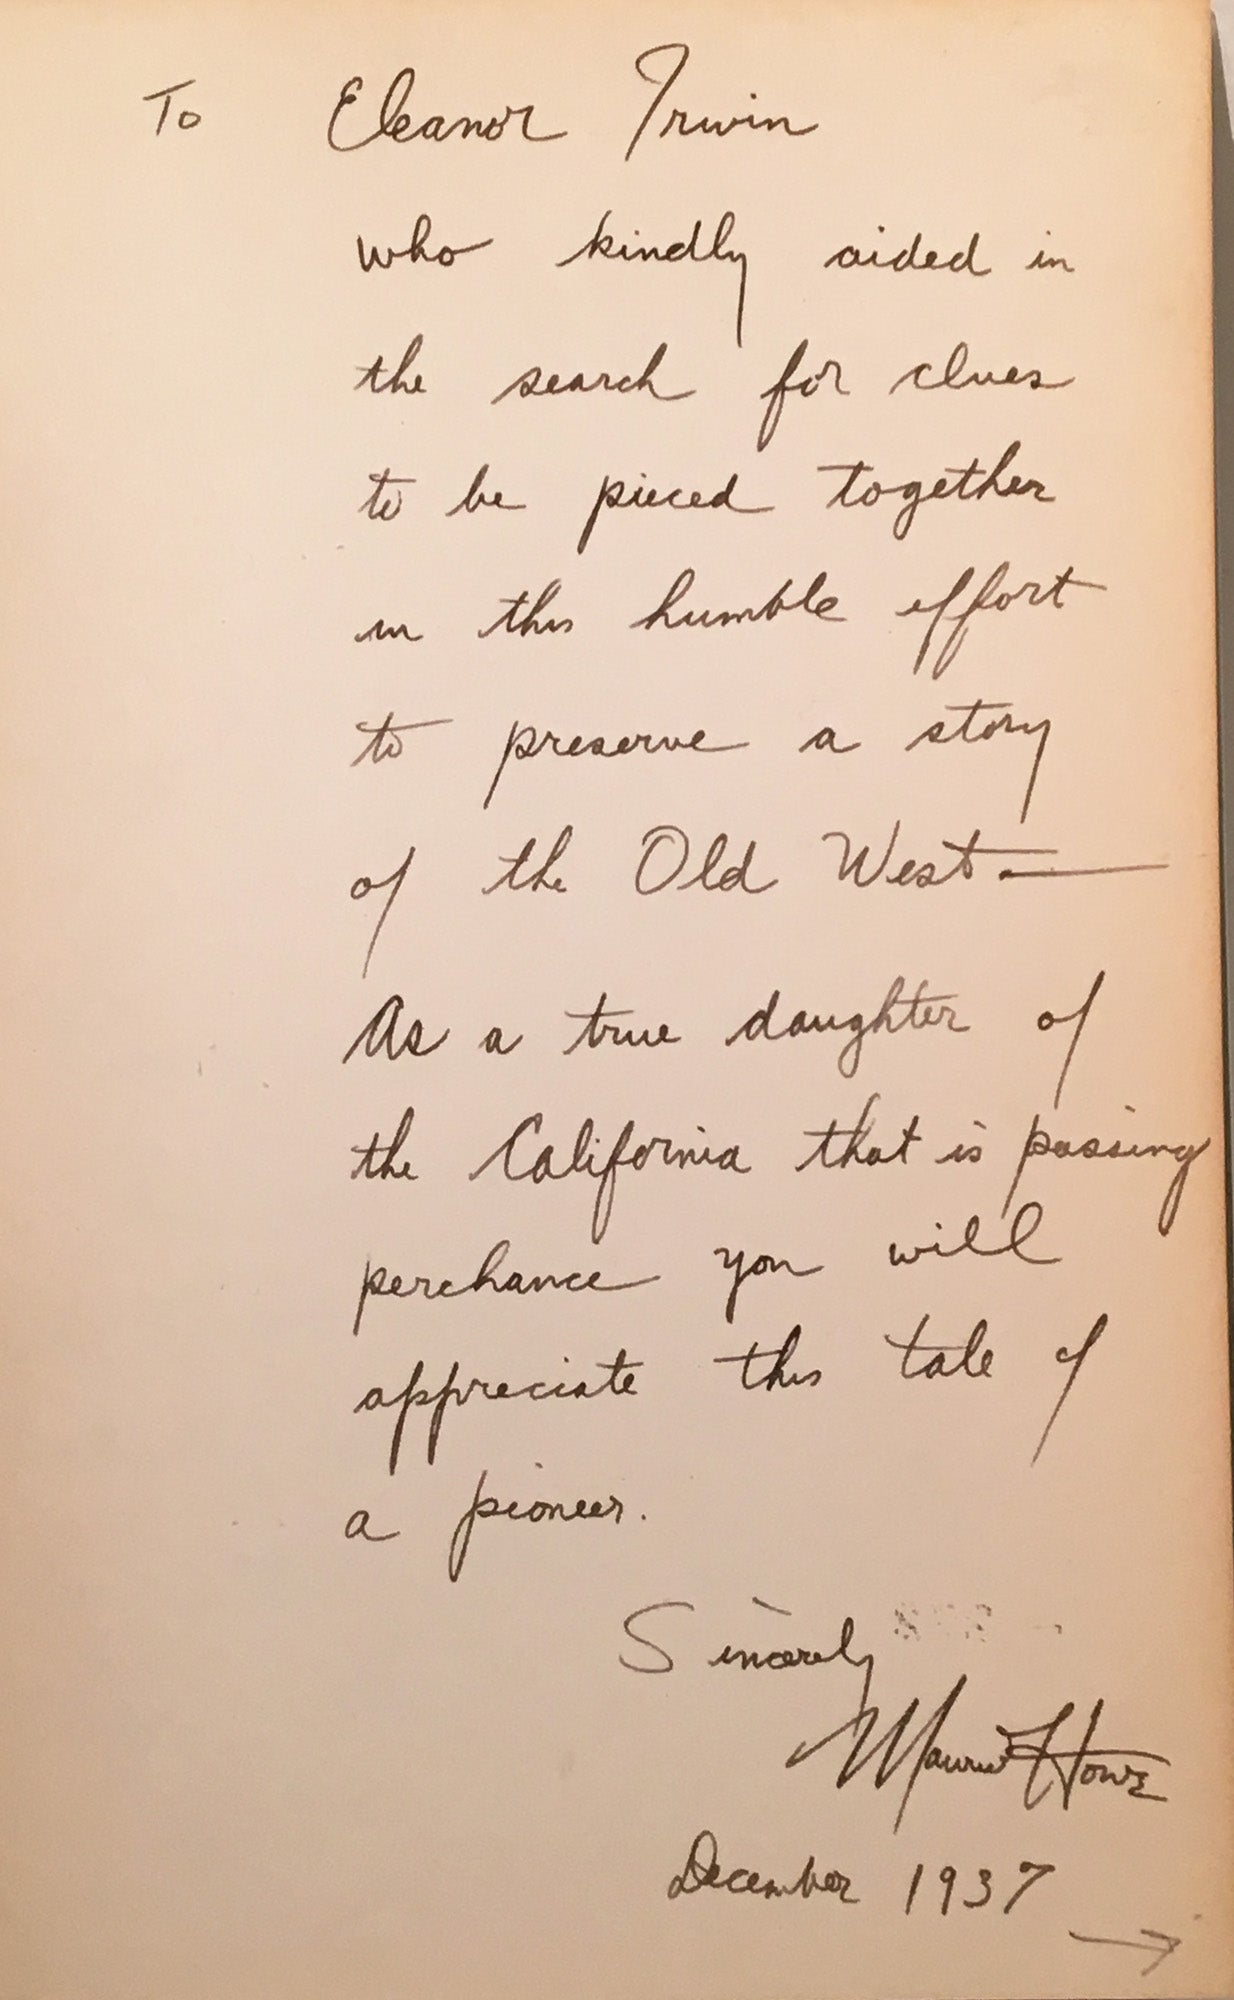 To Eleanor Irwin
who kindly aided in
the search for clues
to be pieced together
in this humble effort
to preserve a story
of the Old West —
As a true daughter of
the California that is passing
perchance you will
appreciate this tale of
a pioneer.
Sincerely
Maurice Howe
December 1937
→